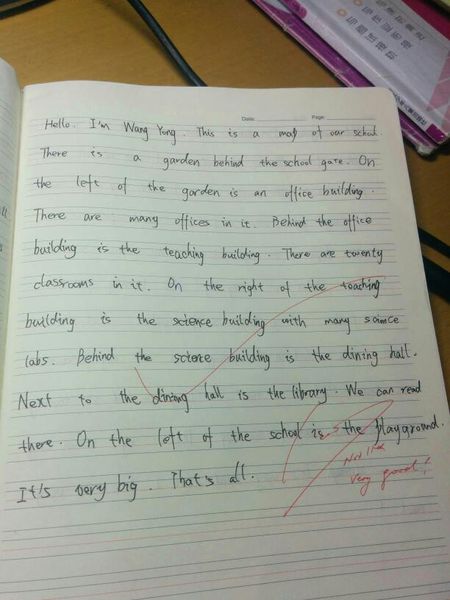 Date: Page:
Hello. I'm Wang Yong. This is a map of our school.
There is a garden behind the school gate. On
the left of the garden is an office building.
There are many offices in it. Behind the office
building is the teaching building. There are twenty
classrooms in it. On the right of the teaching
building is the science building with many science
labs. Behind the science building is the dining hall.
Next to the dining hall is the library. We can read
there. On the left of the school is the playground.
It's very big. That's all.
very good!